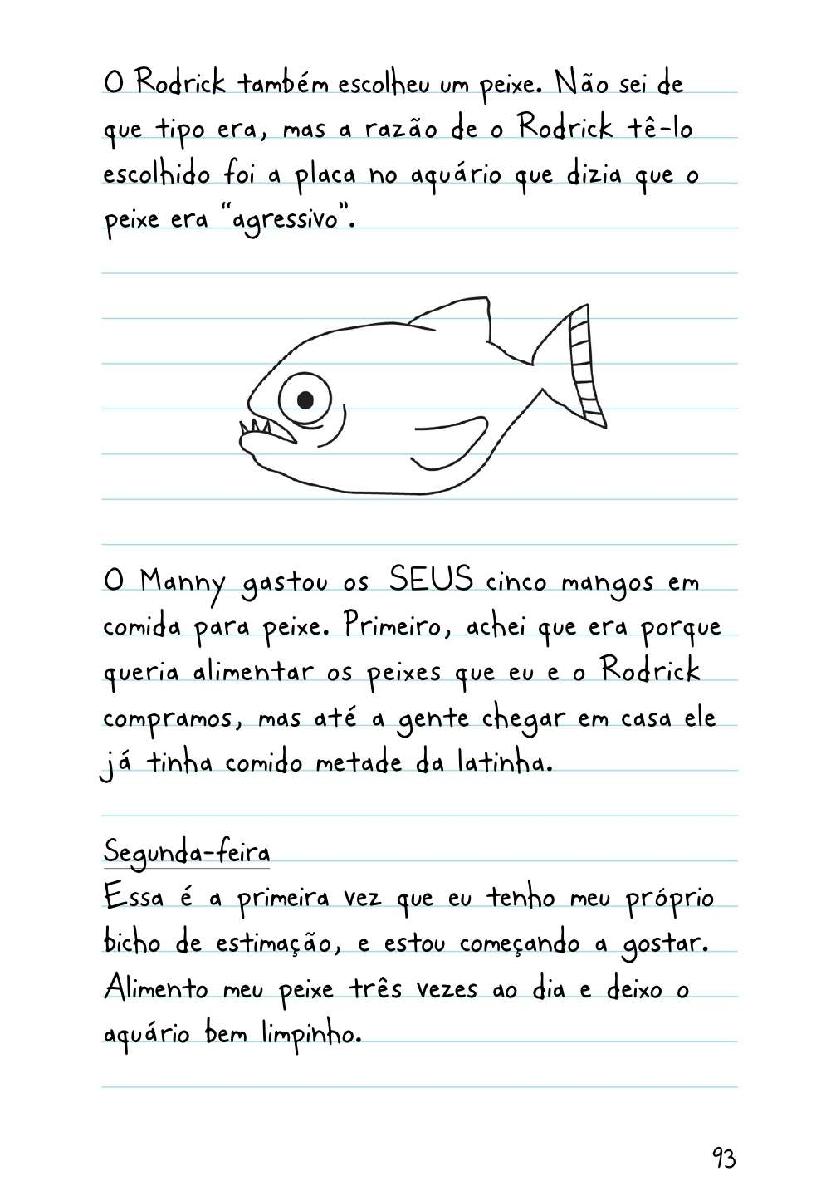 O Rodrick também escolheu um peixe. Não sei de
que tipo era, mas a razão de o Rodrick tê-lo
escolhido foi a placa no aquário que dizia que o
peixe era "agressivo".
O Manny gastou os SEUS cinco mangos em
comida para peixe. Primeiro, achei que era porque
queria alimentar os peixes que eu e o Rodrick
compramos, mas até a gente chegar em casa ele
já tinha comido metade da latinha.
Segunda-feira
Essa é a primeira vez que eu tenho meu próprio
bicho de estimação, e estou começando a gostar.
Alimento meu peixe três vezes ao dia e deixo o
aquário bem limpinho.
93